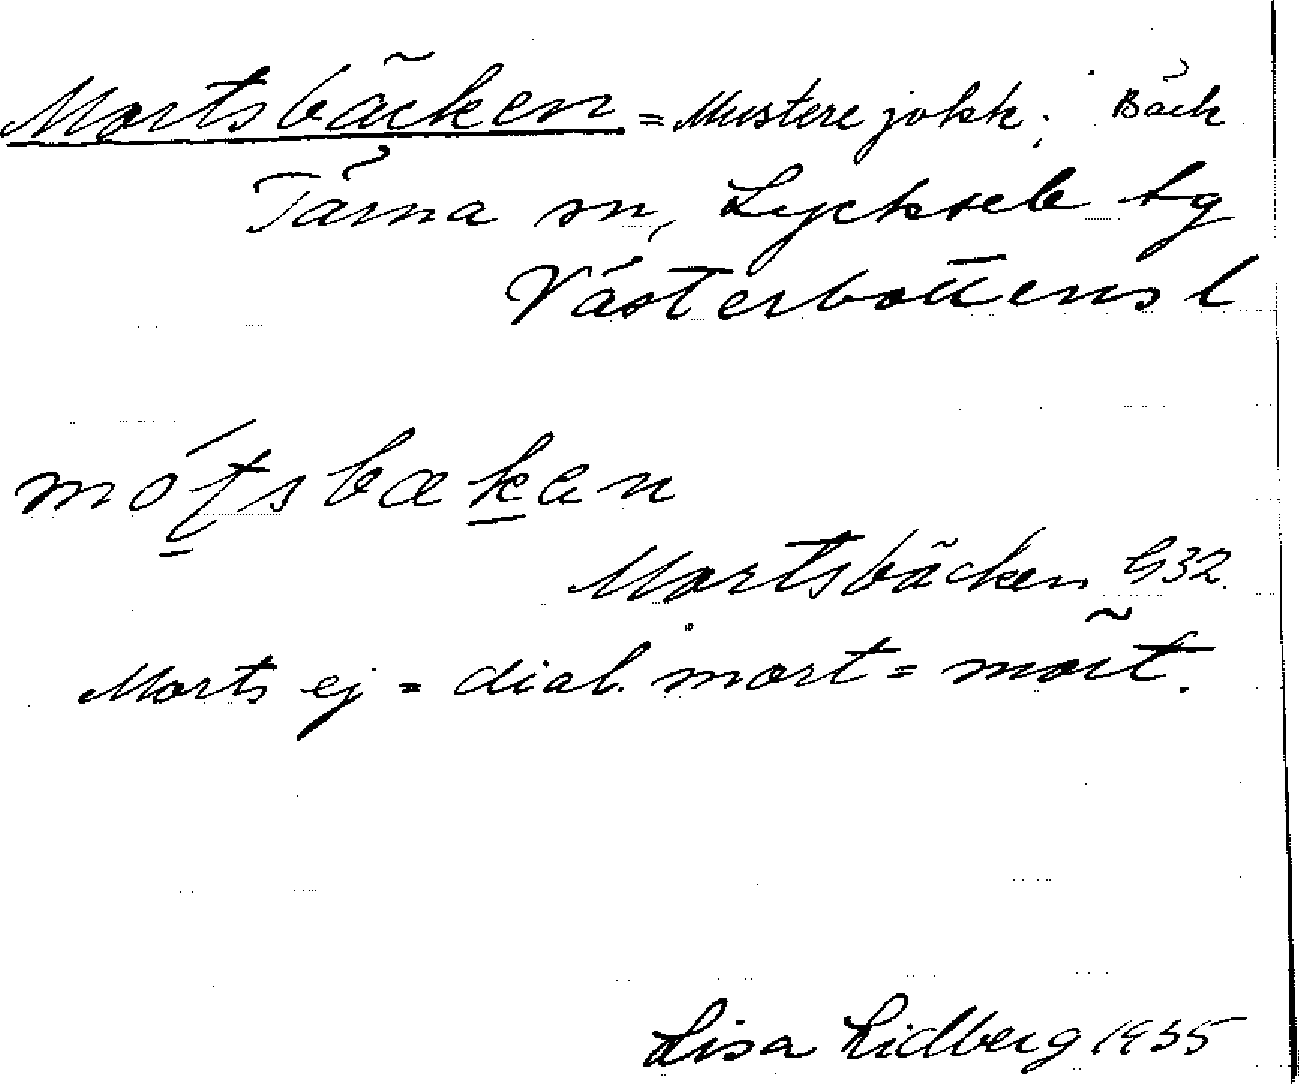 Mortsbäcken = Mustere jokk; Bäck
Tärna sn, Lycksele tg
Västerbottens l
mótsbækæn
Mortsbäcken G32.
Morts ej = dial. mort = mört.
Lisa Lidberg 1935